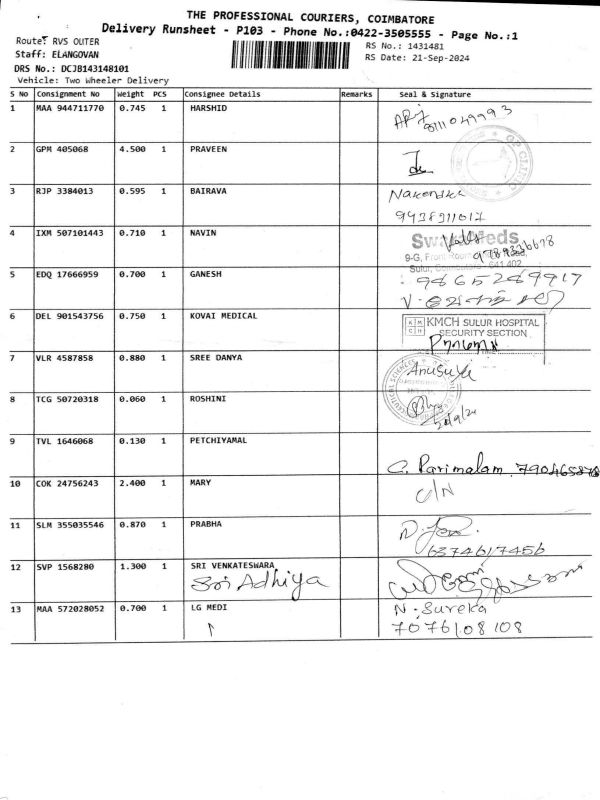 THE PROFESSIONAL COURIERS, COIMBATORE
Delivery Runsheet - P103 - Phone No.:0422-3505555 - Page No.:1
Route: RVS OUTER
RS No.: 1431481
Staff: ELANGOVAN
RS Date: 21-Sep-2024
DRS No.: DCJB143148101
Vehicle: Two Wheeler Delivery
S No Consignment No Weight PCS Consignee Details Remarks Seal & Signature
1 MAA 944711770 0.745 1 HARSHID
2 GPM 405068 4.500 1 PRAVEEN
3 RJP 3384013 0.595 1 BAIRAVA
4 IXM 507101443 0.710 1 NAVIN
5 EDQ 17666959 0.700 1 GANESH
9865289917
6 DEL 901543756 0.750 1 KOVAI MEDICAL
KMCH SULUR HOSPITAL
SECURITY SECTION
7 VLR 4587858 0.880 1 SREE DANYA
Anusuya
8 TCG 50720318 0.060 1 ROSHINI
9 TVL 1646068 0.130 1 PETCHIYAMAL
C. Parimalam
10 COK 24756243 2.400 1 MARY
C/N
11 SLM 355035546 0.870 1 PRABHA
6374617456
12 SVP 1568280 1.300 1 SRI VENKATESWARA
Sri Adhiya
13 MAA 572028052 0.700 1 LG MEDI
N. Sureka
7076108108